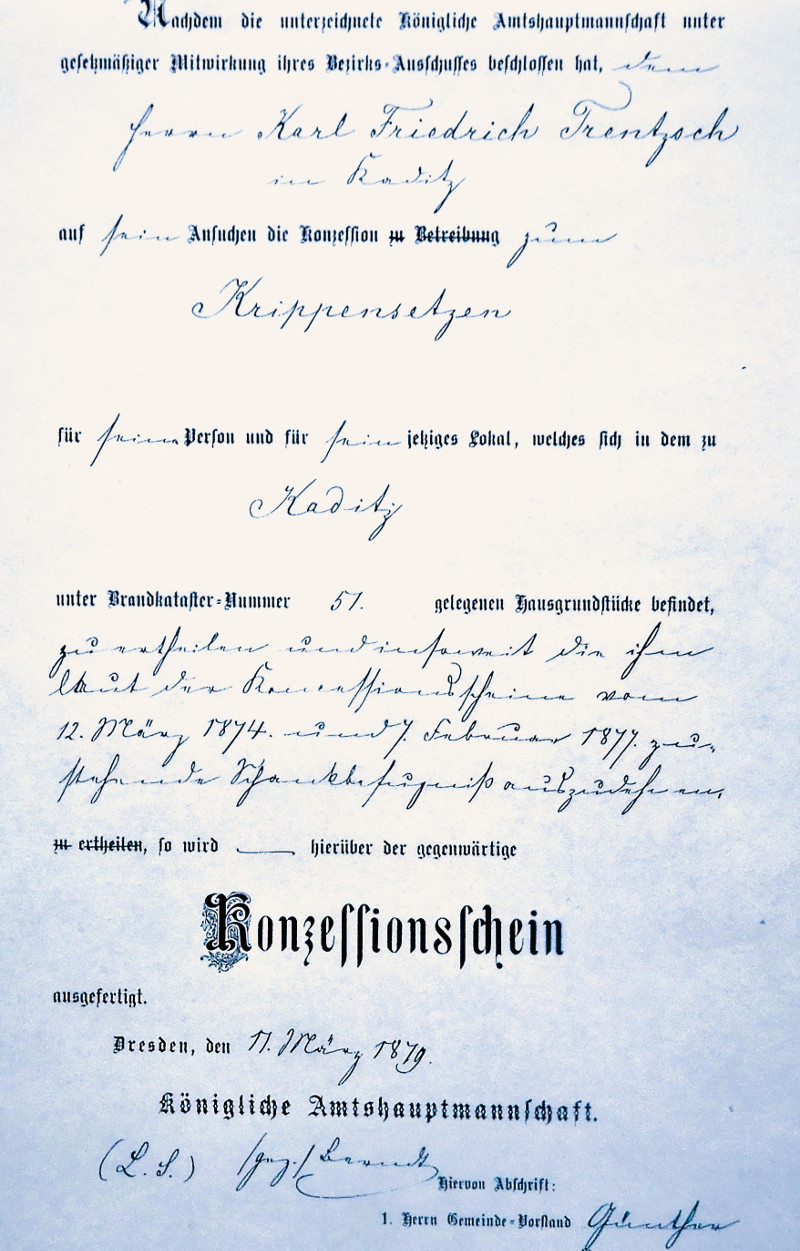 Nachdem die unterzeichnete Königliche Amtshauptmannschaft unter
gesetzmäßiger Mitwirkung ihres Bezirks-Ausschusses beschlossen hat, dem
Herrn Karl Friedrich Trentzsch
in Kaditz
auf sein Ansuchen die Konzession zu Betreibung zum
Krippensetzen
für seine Person und für sein jetziges Lokal, welches sich in dem zu
Kaditz
unter Brandkataster-Nummer 51. gelegenen Hausgrundstücke befindet,
zu ertheilen und insoweit die ihm
laut der Koncessionsscheine vom
12. März 1874. und 7. Februar 1877. zu-
stehende Schankbefugniß auszudehnen,
zu ertheilen, so wird hierüber der gegenwärtige
Konzessionsschein
ausgefertigt.
Dresden, den 11. März 1879.
Königliche Amtshauptmannschaft.
(L. S.) /gez./ Berndt
Hiervon Abschrift:
1. Herrn Gemeinde-Vorstand Günther